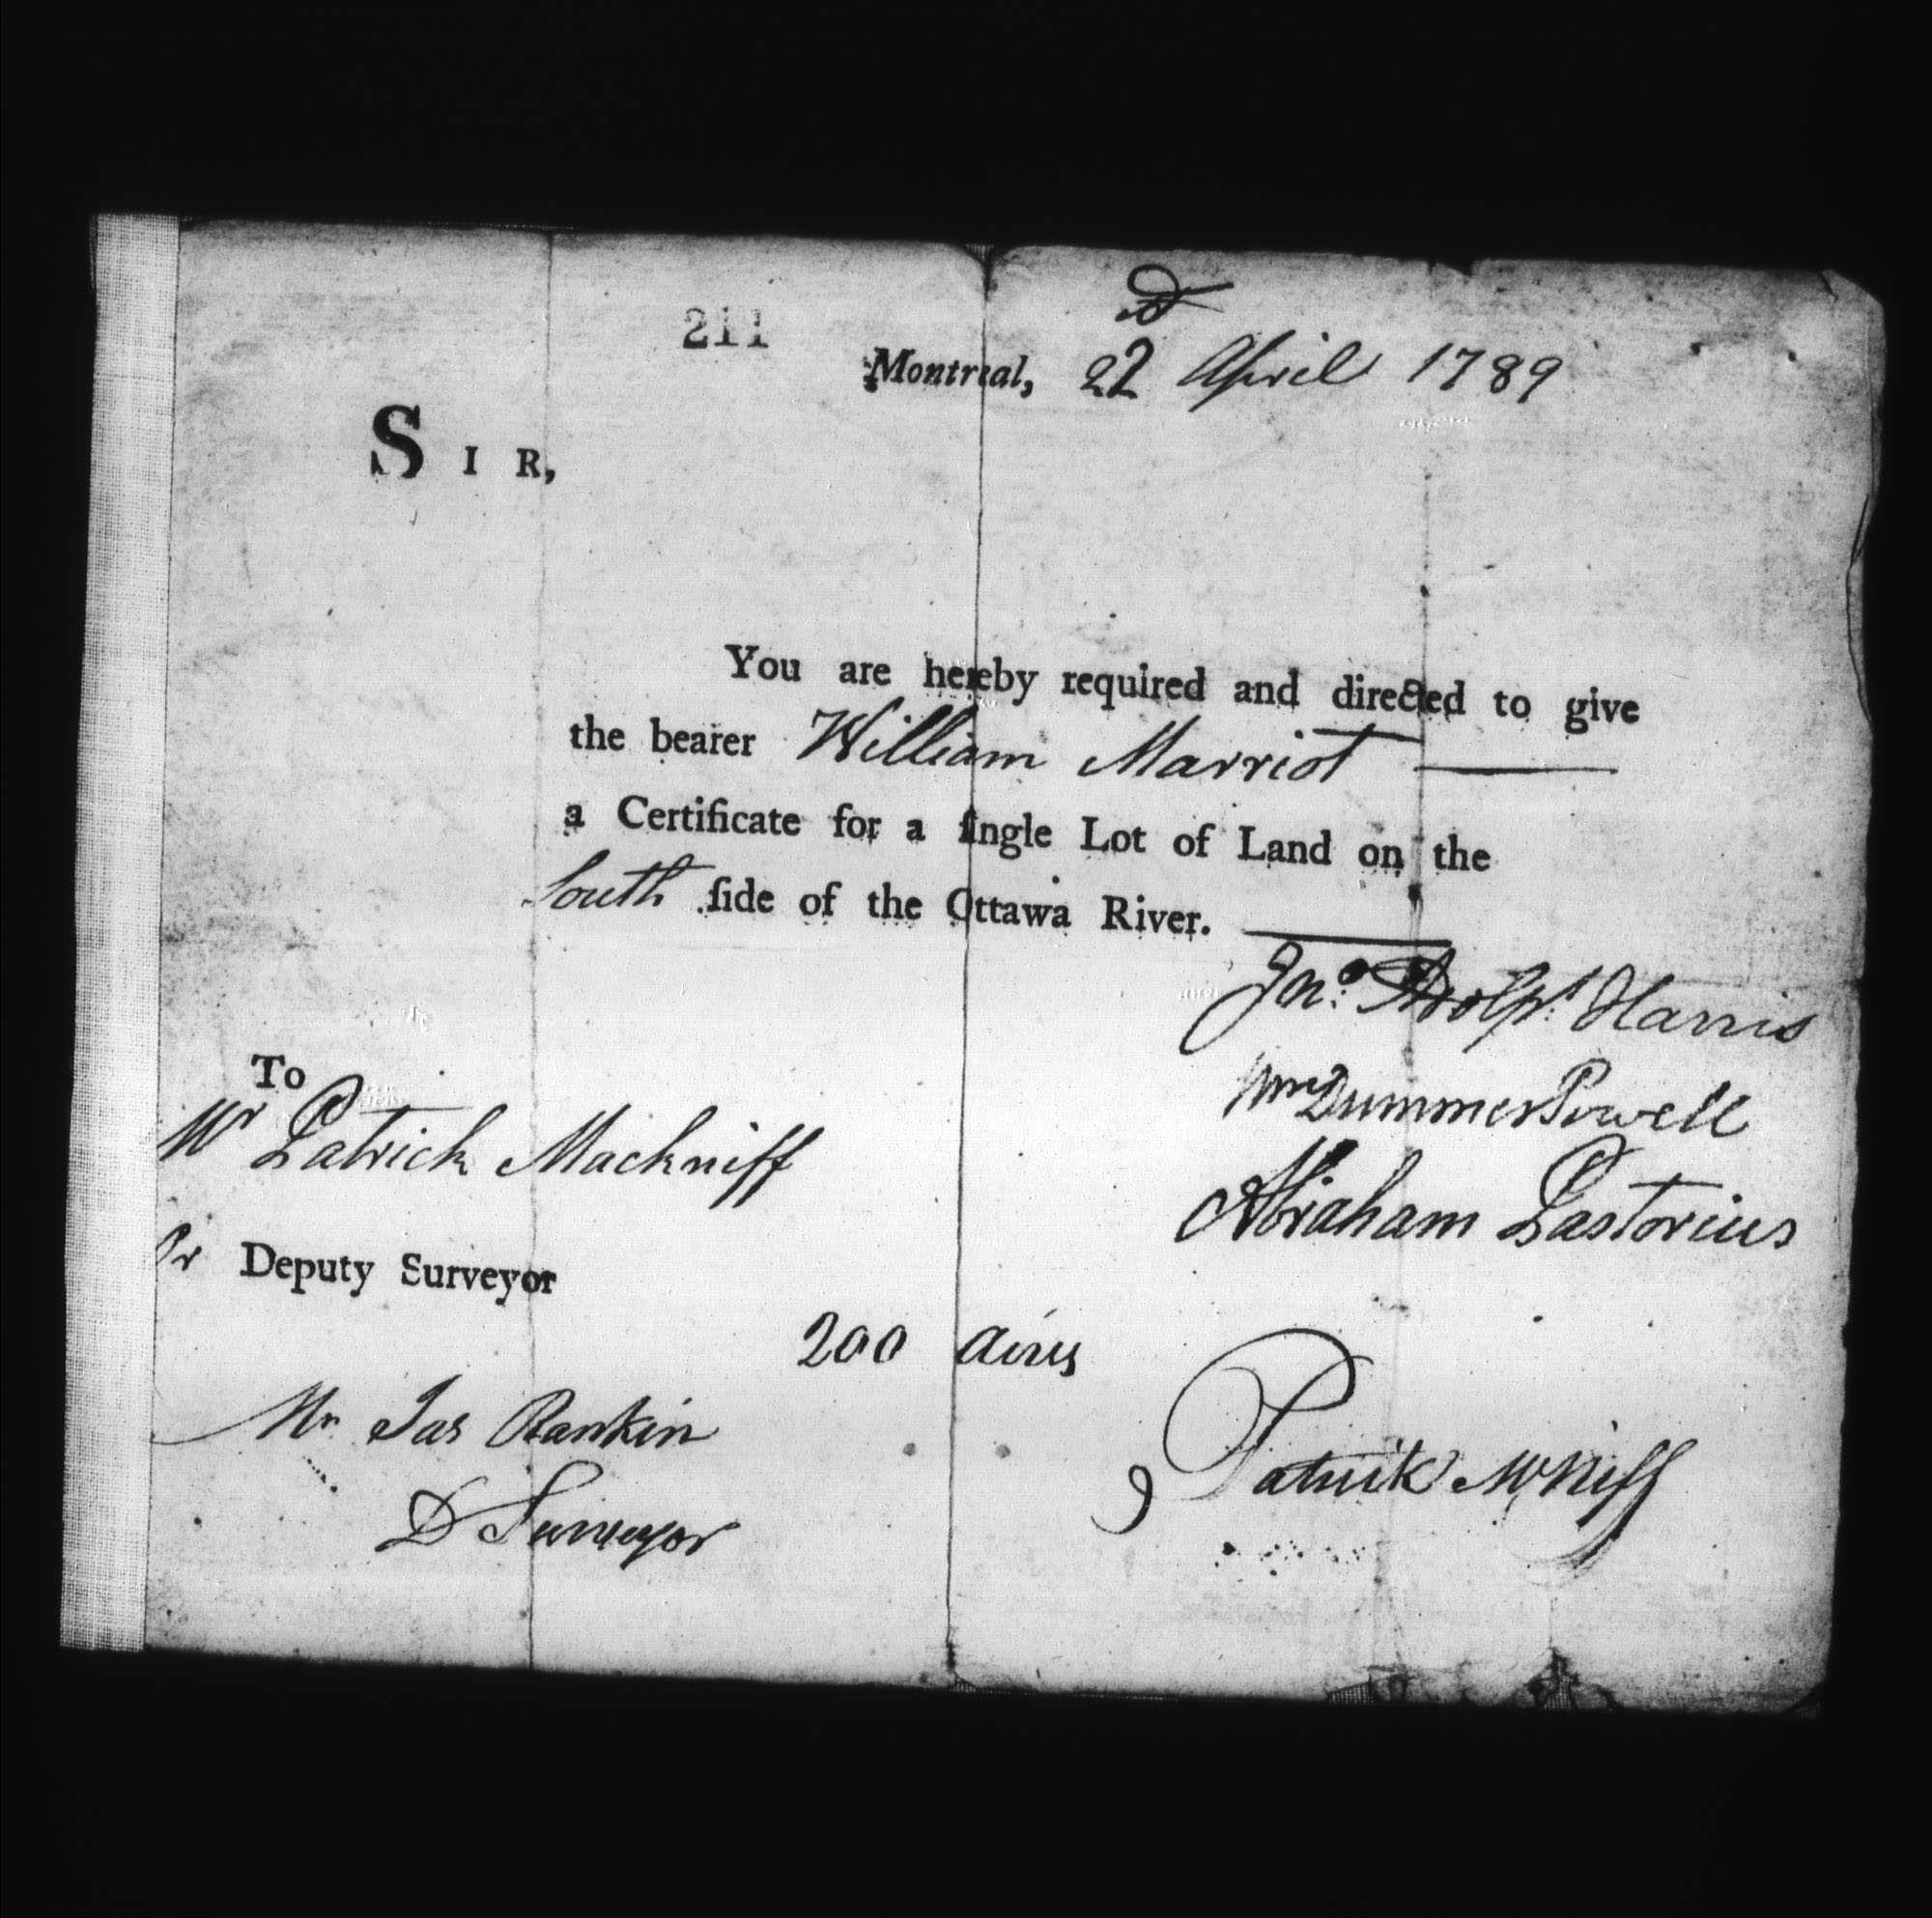 211
Montreal, 22d April 1789
SIR,
You are hereby required and directed to give
the bearer William Marriot
a Certificate for a ſingle Lot of Land on the
South ſide of the Ottawa River.
Jno. Adolps. Harris
Wm Dummer Powell
Abraham Pastorius
To
Mr Patrick Mackniff
Or Deputy Surveyor
200 Acres
Mr Jas Rankin
D Surveyor
Patrick McNiff